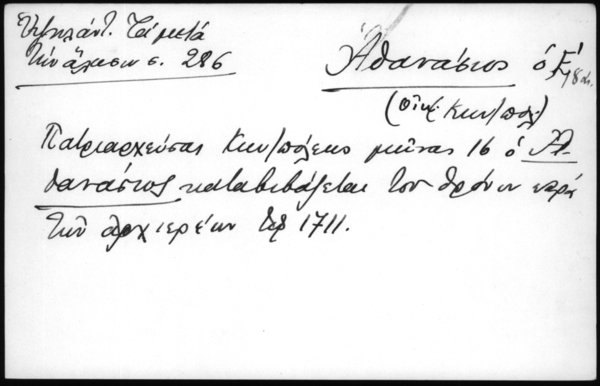 Ὑψηλάντ. Τὰ μετὰ
τὴν ἅλωσιν σ. 286
Ἀθανάσιος ὁ Ε΄
(Οἰκ. Κων/πόλ.)
Πατριαρχεύσας Κων/πόλεως μῆνας 16 ὁ Ἀ-
θανάσιος καταβιβάζεται τοῦ θρόνου παρὰ
τῶν ἀρχιερέων τῷ 1711.